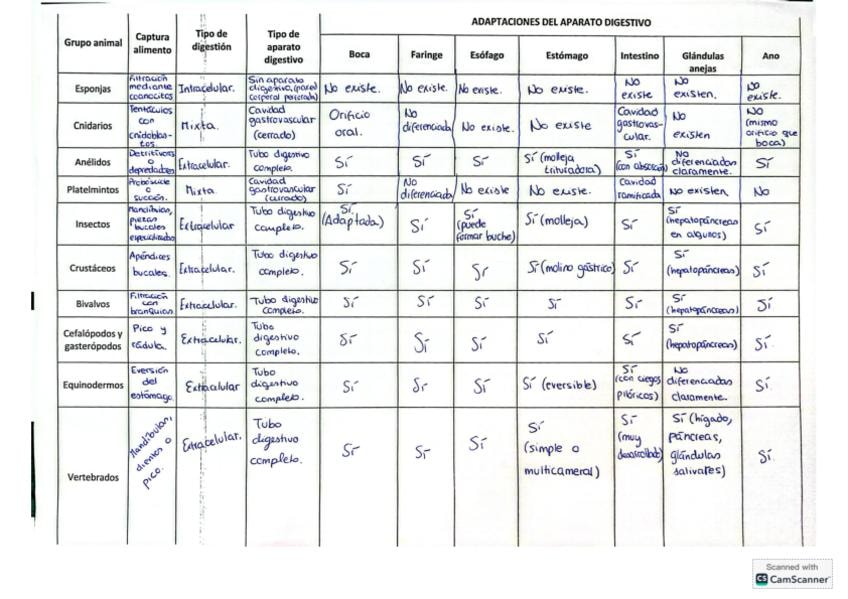 ADAPTACIONES DEL APARATO DIGESTIVO
Grupo animal
Captura alimento
Tipo de digestión
Tipo de aparato digestivo
Boca
Faringe
Esófago
Estómago
Intestino
Glándulas anejas
Ano
Esponjas
Filtración mediante coanocitos
Intracelular.
Sin aparato digestivo, (pared corporal perforada)
No existe.
No existe.
No existe.
No existe.
No existe
No existen.
No existe.
Cnidarios
Tentáculos con cnidoblastos.
Mixta.
Cavidad gastrovascular (cerrado)
Orificio oral.
No diferenciada
No existe.
No existe
Cavidad gastrovascular.
No existen
No (mismo orificio que boca)
Anélidos
Detritívoros o depredadores
Extracelular.
Tubo digestivo completo.
Sí
Sí
Sí
Sí (molleja trituradora)
Sí (con absorción)
No diferenciadas claramente.
Sí
Platelmintos
Probóscide o succión.
Mixta
Cavidad gastrovascular (cerrado)
Sí
No diferenciada
No existe
No existe.
Cavidad ramificada
No existen
No
Insectos
Mandíbulas, piezas bucales especializadas
Extracelular
Tubo digestivo completo.
Sí (Adaptada)
Sí
Sí (puede formar buche)
Sí (molleja)
Sí
Sí (hepatopáncreas en algunos)
Sí
Crustáceos
Apéndices bucales.
Extracelular.
Tubo digestivo completo.
Sí
Sí
Sí
Sí (molino gástrico)
Sí
Sí (hepatopáncreas)
Sí
Bivalvos
Filtración con branquias.
Extracelular.
Tubo digestivo completo.
Sí
Sí
Sí
Sí
Sí
Sí (hepatopáncreas)
Sí
Cefalópodos y gasterópodos
Pico y rádula.
Extracelular.
Tubo digestivo completo.
Sí
Sí
Sí
Sí
Sí
Sí (hepatopáncreas)
Sí.
Equinodermos
Eversión del estómago.
Extracelular
Tubo digestivo completo.
Sí
Sí
Sí
Sí (eversible)
Sí (con ciegos pilóricos)
No diferenciadas claramente.
Sí.
Vertebrados
Mandíbulas, dientes o pico.
Extracelular.
Tubo digestivo completo.
Sí
Sí
Sí
Sí (simple o multicameral)
Sí (muy desarrollado)
Sí (hígado, páncreas, glándulas salivares)
Sí.
Scanned with
CS CamScanner